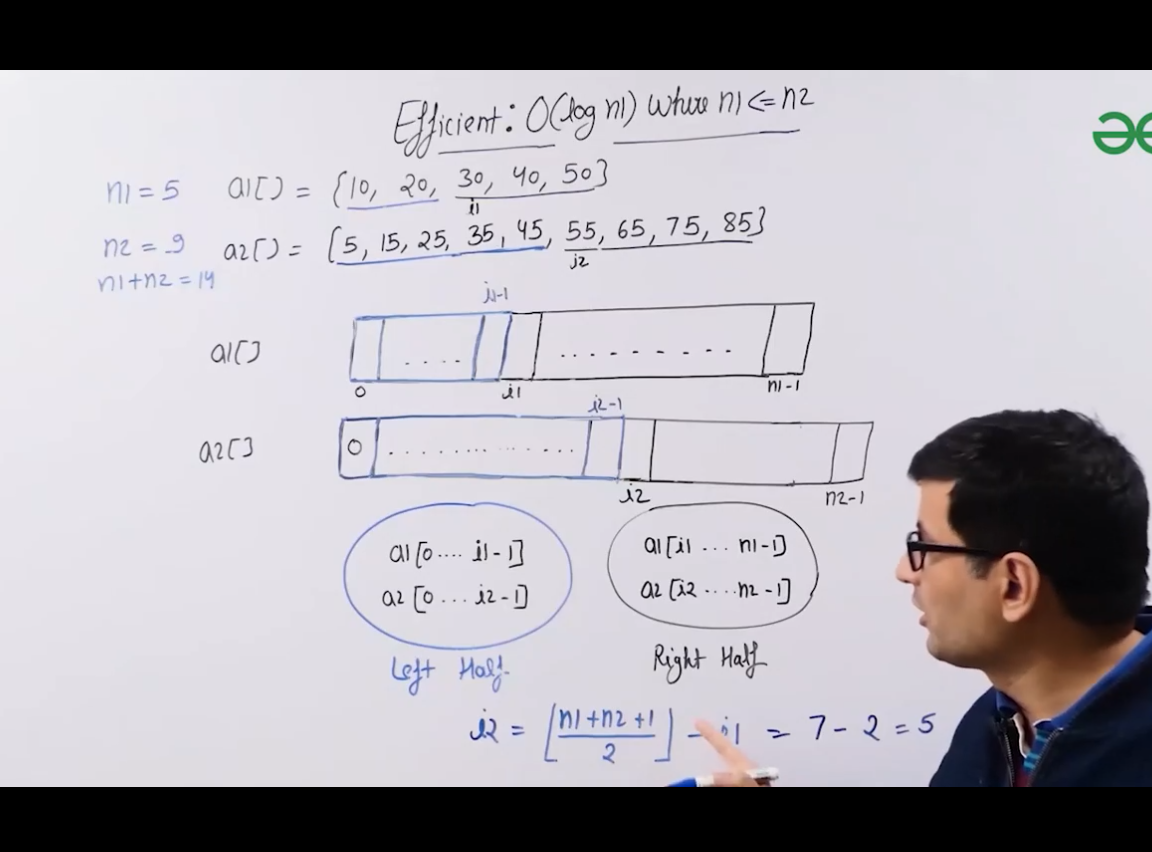 Efficient: O(log n1) where n1 <= n2
n1 = 5 a1[] = {10, 20, 30, 40, 50}
i1
n2 = 9 a2[] = {5, 15, 25, 35, 45, 55, 65, 75, 85}
i2
n1+n2 = 14
i1-1
a1[] .... .........
0 i1 n1-1
i2-1
a2[] 0 ..............
i2 n2-1
a1[0....i1-1]
a2[0...i2-1]
Left Half.
a1[i1...n1-1]
a2[i2....n2-1]
Right Half
i2 = ⌊(n1+n2+1)/2⌋ - i1 = 7 - 2 = 5